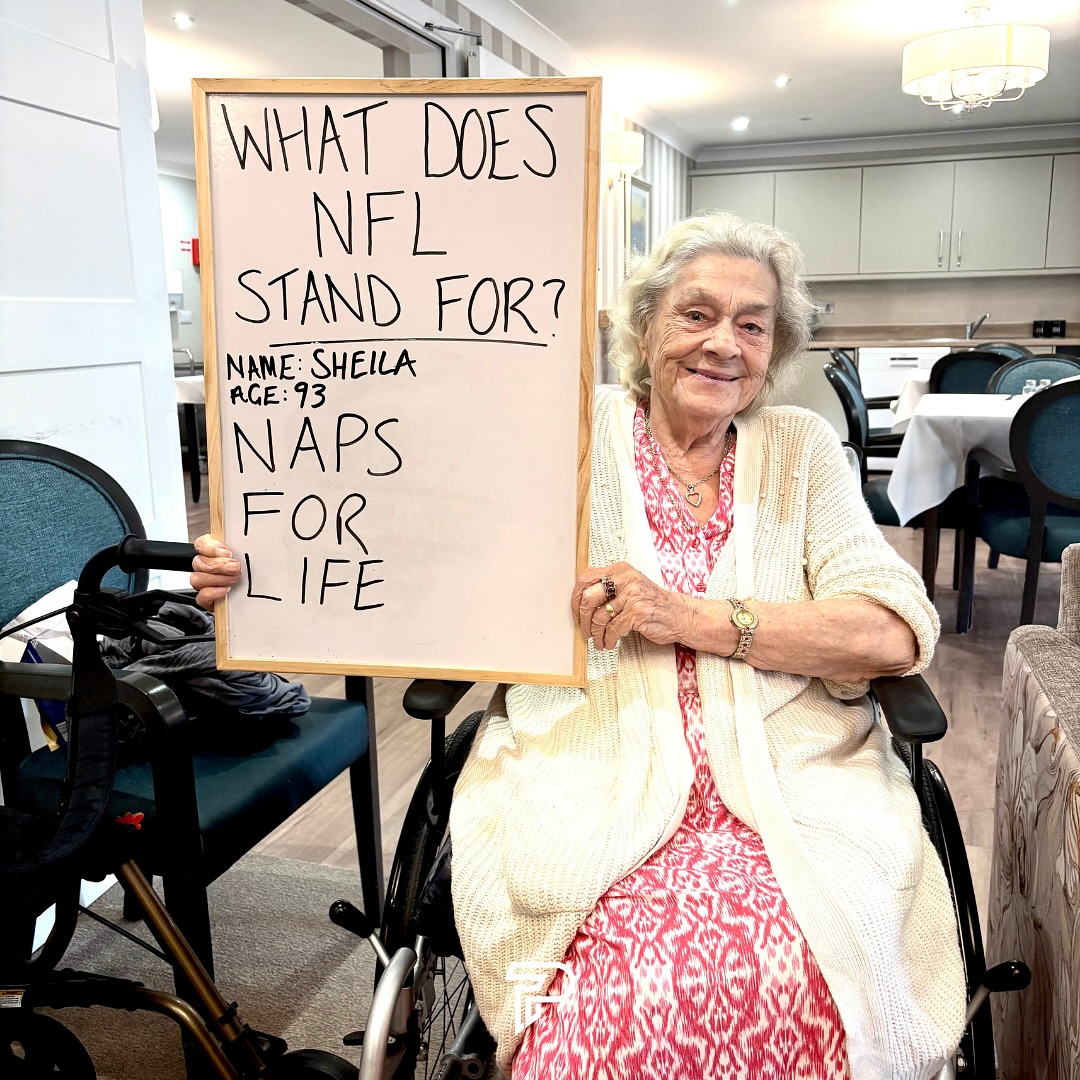 WHAT DOES
NFL
STAND FOR?
NAME: SHEILA
AGE: 93
NAPS
FOR
LIFE